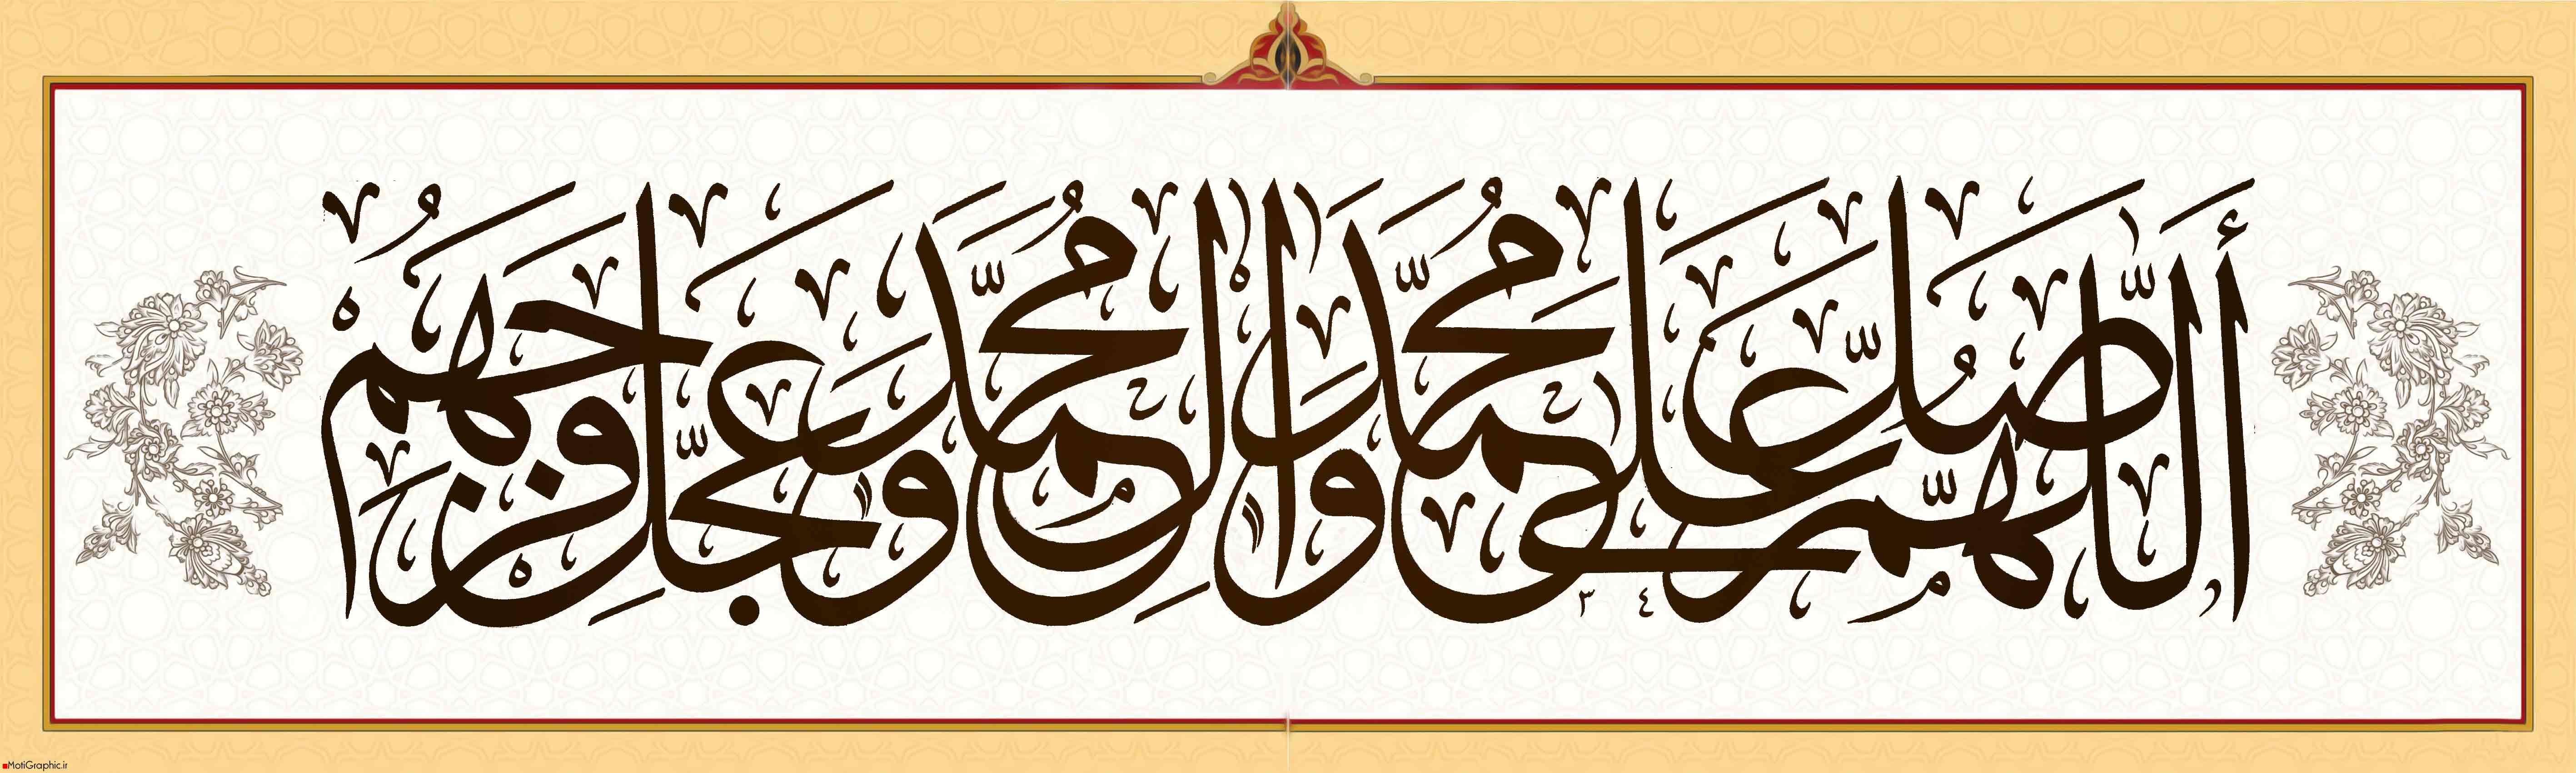 أللهم صل على محمد وآل محمد وعجل فرجهم
٣٤
MotiGraphic.ir